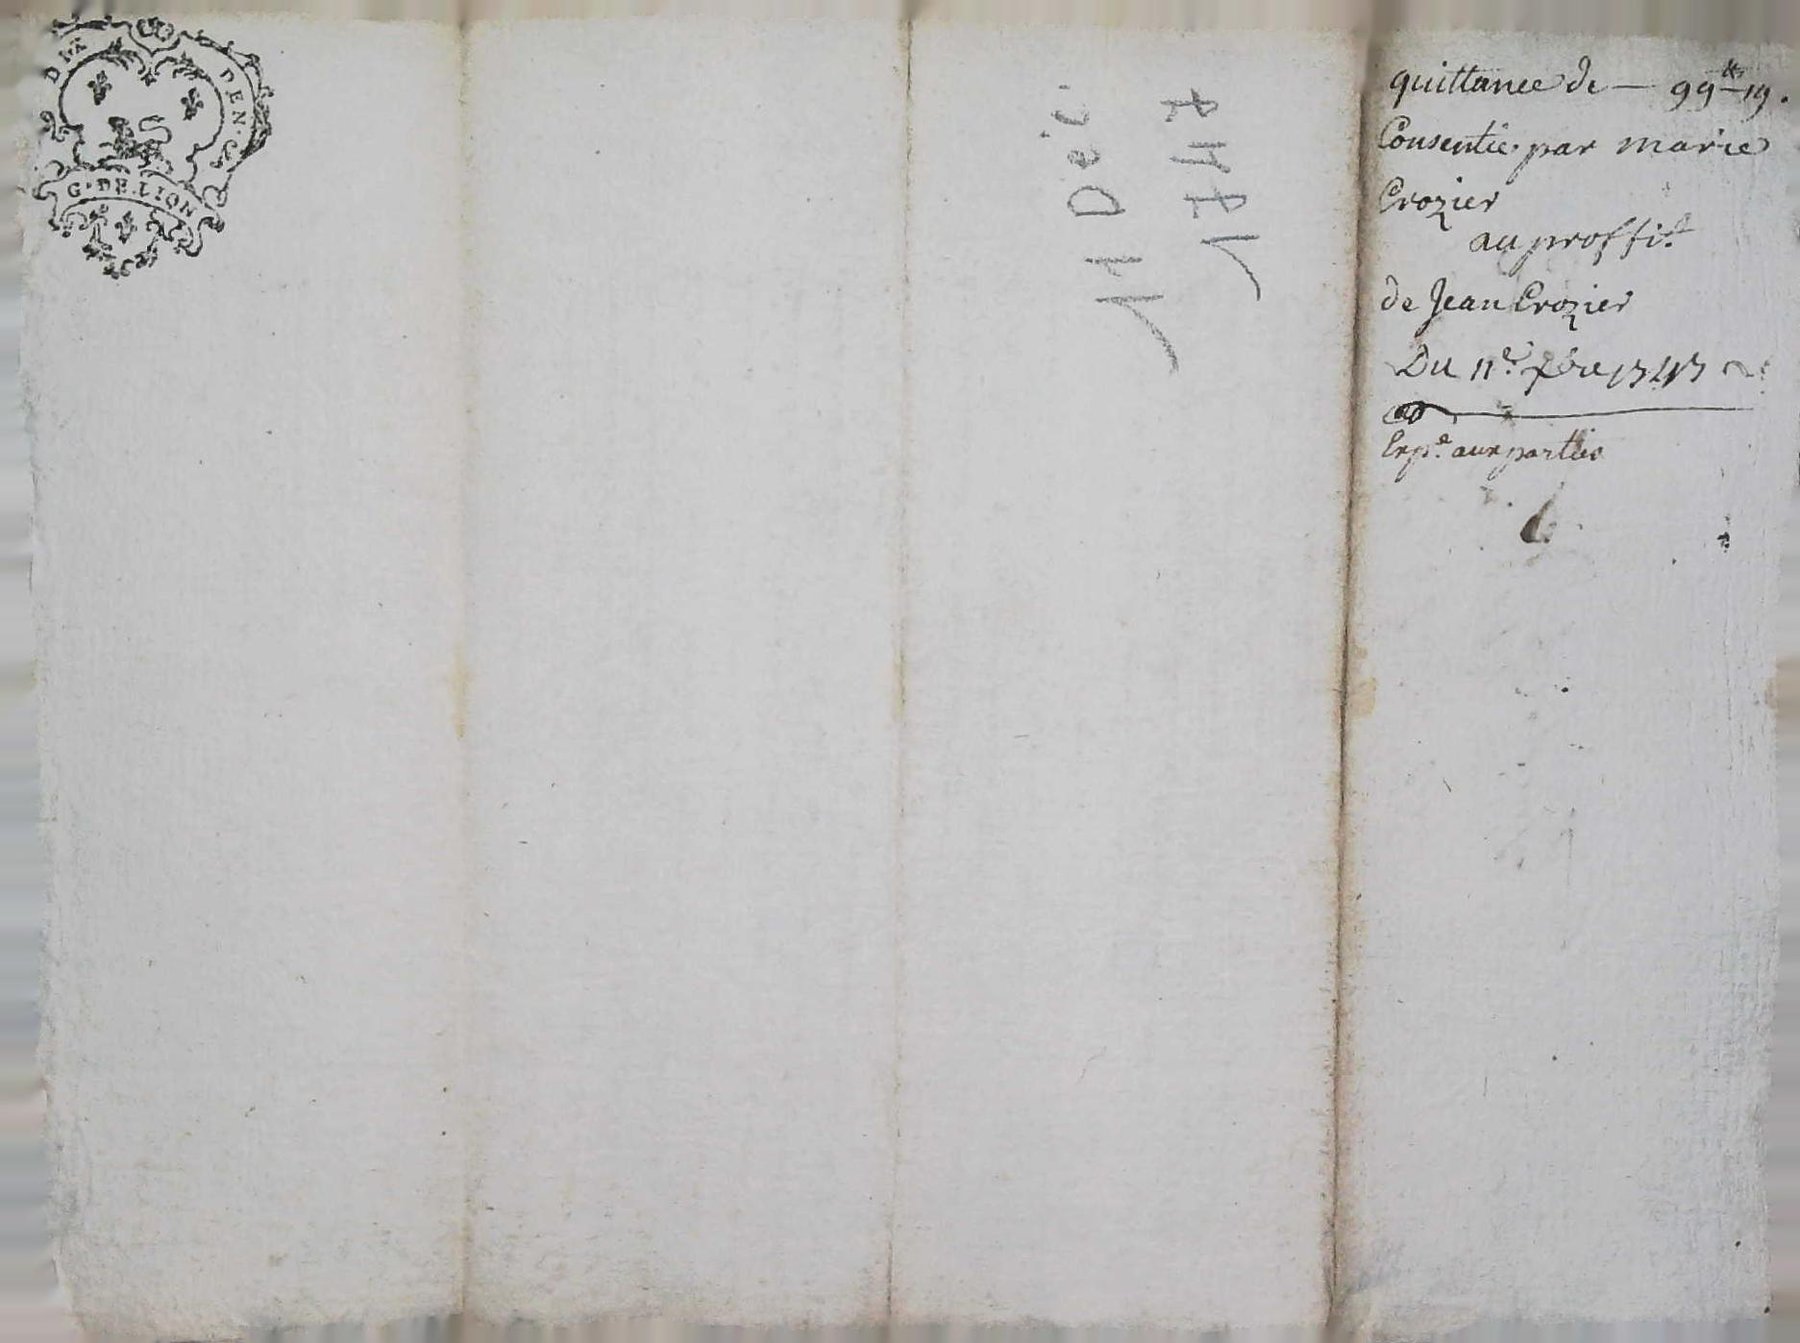 DIX DEN.
G. DE LION
11 Déc.
1747
quittance de — 99ᵗᵗ 19.
Consentie par marie
Crozier
au proffit
de Jean Crozier
Du 11ᵉ xbre 1747
Expᵉ aux parties